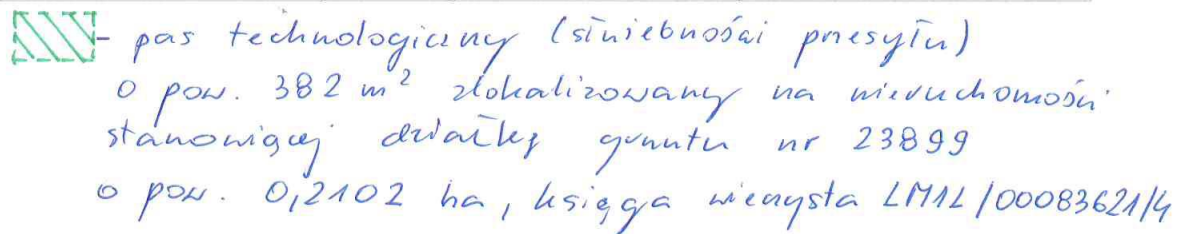 - pas technologiczny (służebności przesyłu)
o pow. 382 m² zlokalizowany na nieruchomości
stanowiącej działkę gruntu nr 23899
o pow. 0,2102 ha, księga wieczysta LM1L/00083621/4